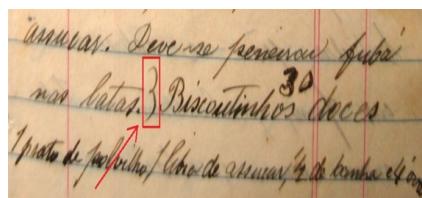 assucar. Deve se peneirar fubá
nas latas. } Biscoutinhos doces
30
1 prato de polvilho, 1 libra de assucar, 1/2 de banha e 4